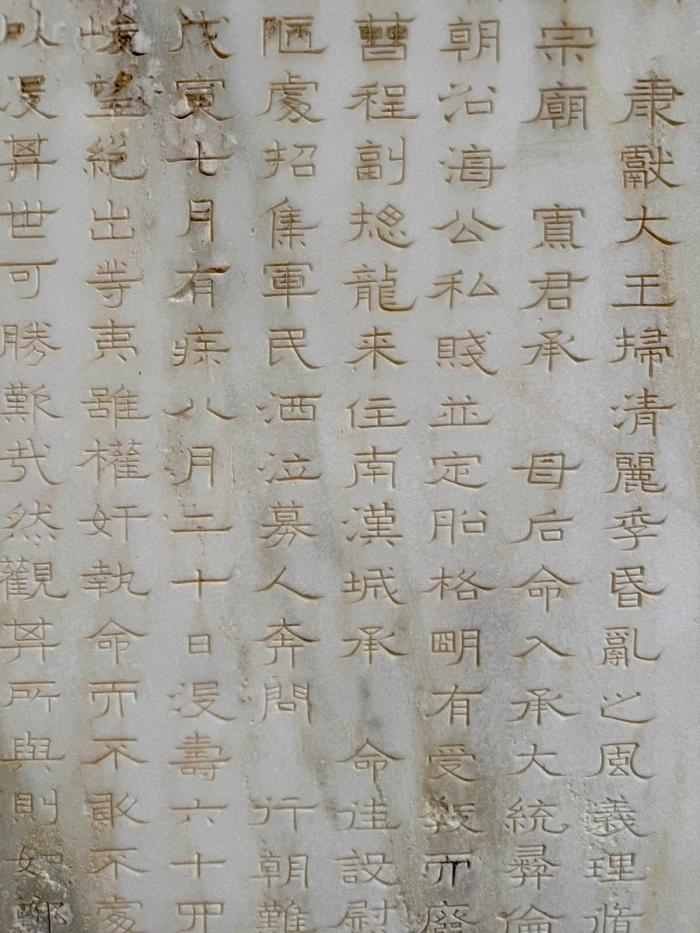 康獻大王掃清麗季昏亂之風義理脩
宗廟 寡君承 母后命入承大統彛倫
朝沿海公私賤並定船格明有受教而廢
曹程副摠龍来住南漢城承 命往設慰
陋處招集軍民洒泣募人奔問 行朝難
戊寅七月有疾八月二十日沒壽六十四
峻望絕出等夷雖權奸執命而不敢不處
以沒其世可勝歎哉然觀其所與則如鄭